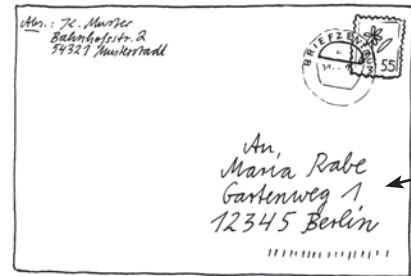 Abs.: K. Muster
Bahnhofsstr. 2
54321 Musterstadt
BRIEFZENTRUM
55
An,
Maria Rabe
Gartenweg 1
12345 Berlin